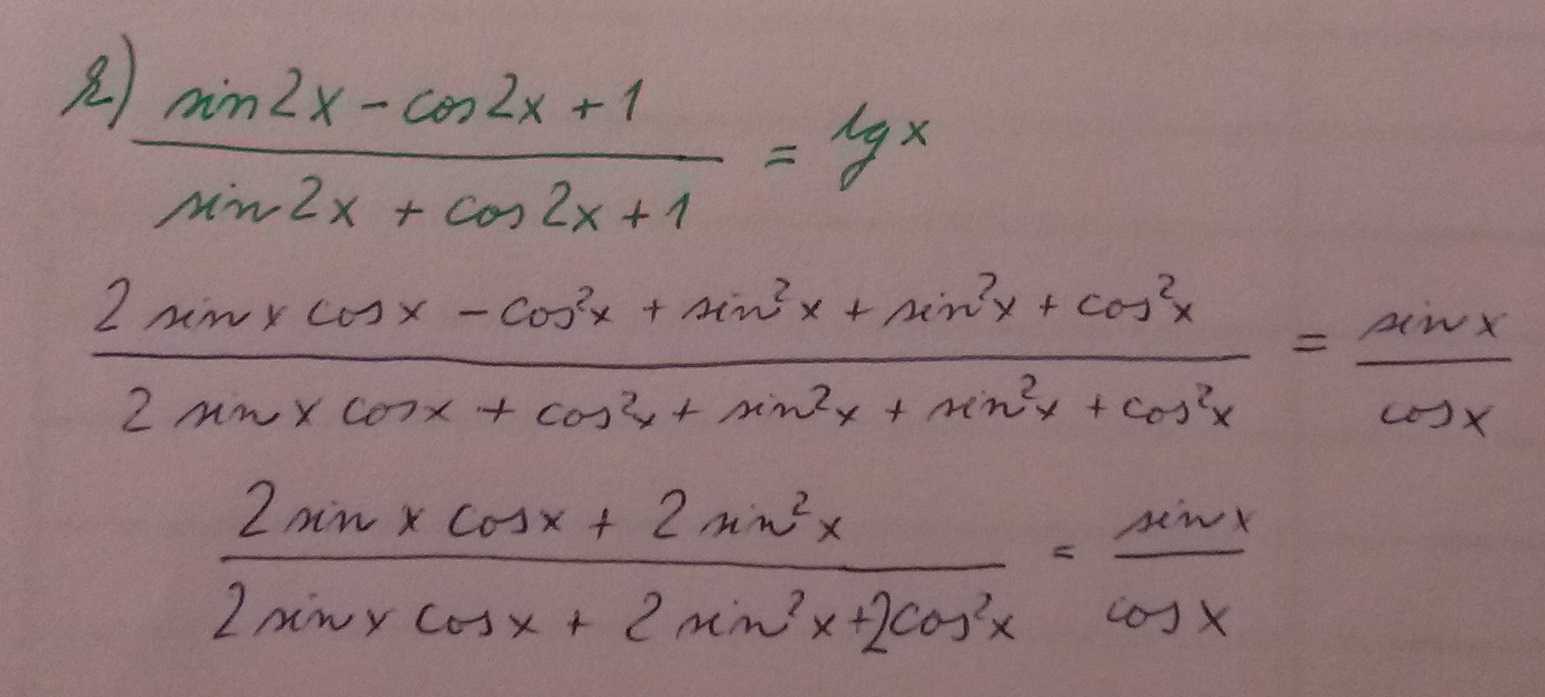 k) (sin2x - cos2x + 1)/(sin2x + cos2x + 1) = tgx
(2 sinx cosx - cos²x + sin²x + sin²x + cos²x)/(2 sinx cosx + cos²x + sin²x + sin²x + cos²x) = sinx/cosx
(2 sinx cosx + 2 sin²x)/(2 sinx cosx + 2 sin²x + 2cos²x) = sinx/cosx